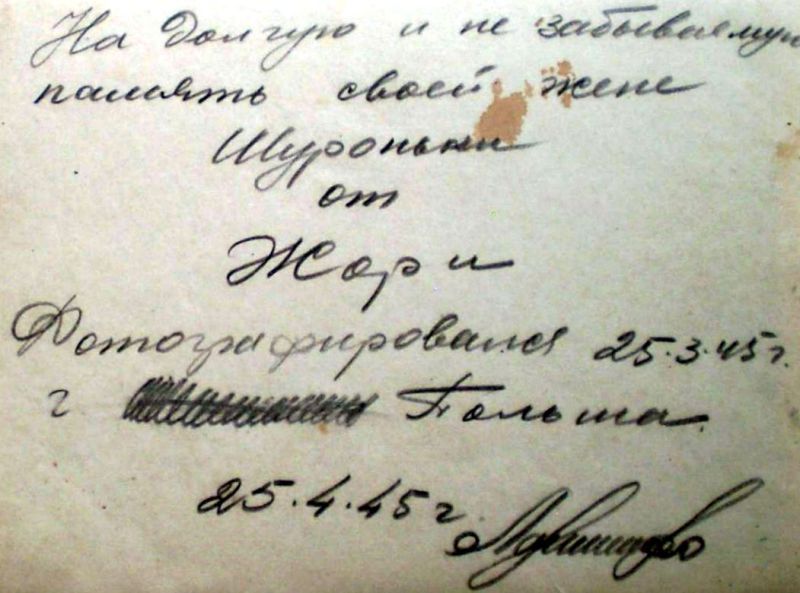 На долгую и не забываемую
память своей жене
Шуроньки
от
Жори
Фотографировался 25.3.45 г.
г Польша.
25.4.45 г.